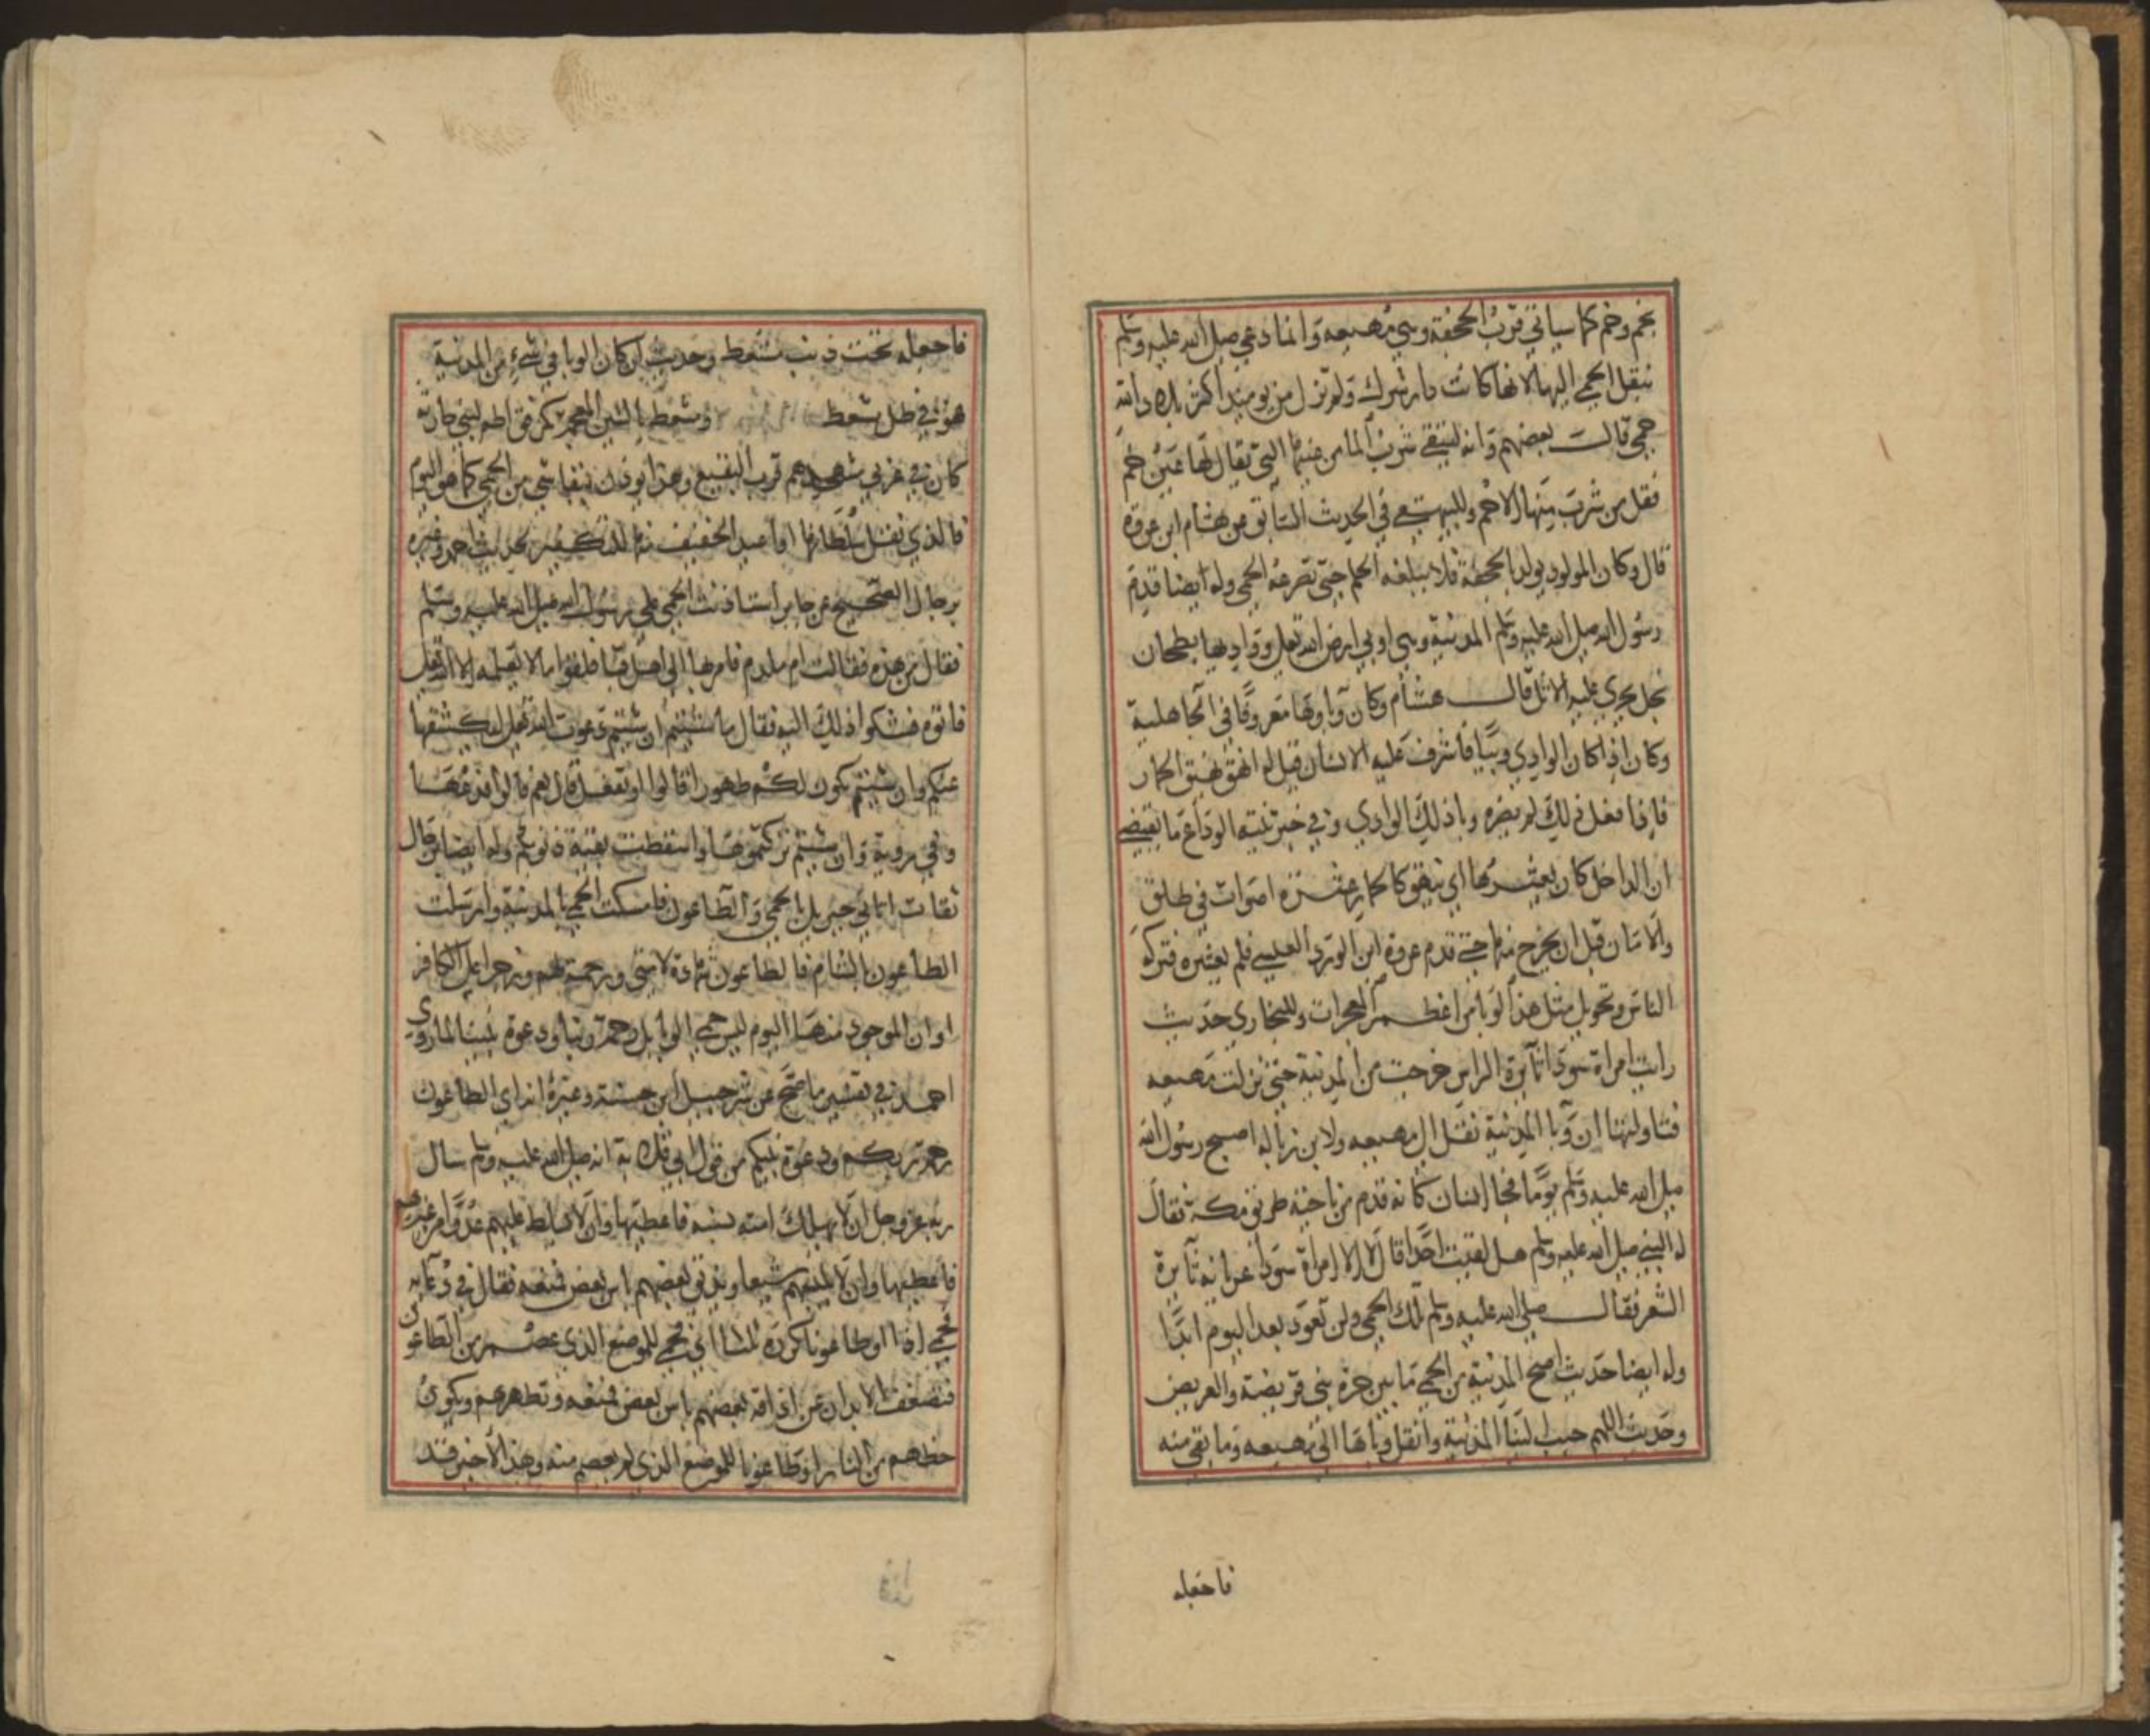 بخم وخم كما سياتي قرب الجحفة وهي مهيعه وانما دعى صلى الله عليه وسلم
بنقل الحمى اليها لانها كانت دار شرك ولم تزل من يوميذ اكثر بلاد الله
حمى قالت بعضهم وانه ليتقى شرب الما من عينها التي يقال لها عين خم
فقل من شرب منها الا حم وللبيهقي في الحديث السابق عن هشام ابن عروة
قال وكان المولود يولد بالجحفة فلا يبلغه الحلم حتى تصرعه الحمى وله ايضا قدم
رسول الله صلى الله عليه وسلم المدينة وهي اوبى ارض الله تعلى وواديها بطحان
نجل يجري عليه الاثل قال هشام وكان وباوها معروفا في الجاهلية
وكان اذا كان الوادي وبيا فاشرف عليه الانسان قيل له انهق نهيق الحمار
فاذا فعل ذلك لم يضره وبا ذلك الوادي وفي خبر ثنية الوداع ما يقتضي
ان الداخل كان يعشر بها اي ينهق كالحمار عشرة اصوات في طلق
والا مات قبل ان يخرج منها حتى قدم عروة ابن الورد العبسي فلم يعشر فتركه
الناس وتحويل مثل هذا الوبا من اعظم المعجزات وللبخاري حديث
رايت امراة سودا ثايرة الراس خرجت من المدينة حتى نزلت مهيعه
فتاولتها ان وبا المدينة نقل الى مهيعه ولابن زبالة اصبح رسول الله
صلى الله عليه وسلم يوما فجا انسان كانه قدم من ناحية طريق مكة فقال
له النبي صلى الله عليه وسلم هل لقيت احدا قال لا الا امراة سودا عريانه ثايرة
الشعر فقال صلى الله عليه وسلم تلك الحمى ولن تعود بعد اليوم ابدا
وله ايضا حديث اصح المدينة من الحمى ما بين حرة بني قريضة والعريض
وحديث اللهم حبب الينا المدينة وانقل وباها الى مهيعه وما بقي منه
فاجعله
فاجعله تحت ذنب مشعط وحديث ان كان الوبا في شيء من المدينة
فهو في ظل مشعط ومشعط بالشين المعجمة كمرفق اطم لبني حديلة
كان في غربي مسجدهم قرب البقيع وهذا يوذن ببقا شي من الحمى كما هو اليوم
فالذي نقل سلطانها او اعيد الخفيف منها للتكفير لحديث احمد وغيره
برجال الصحيح عن جابر استاذنت الحمى على رسول الله صلى الله عليه وسلم
فقال من هذه فقالت ام ملدم فامر بها الى اهل قبا فلقوا ما لا يعلمه الا الله تعلى
فاتوه فشكوا ذلك اليه فقال ما شيتم ان شيتم دعوت الله تعلى ليكشفها
عنكم وان شيتم تكون لكم طهورا قالوا او تفعل قال نعم قالوا فدعها
وفي رواية وان شيتم تركتموها واسقطت بقية ذنوبكم وله ايضا برجال
ثقات اتاني جبريل بالحمى والطاعون فامسكت الحمى بالمدينة وارسلت
الطاعون بالشام فالطاعون شهادة لامتي ورحمة لهم ورجز على الكافر
او ان الموجود منها اليوم ليس حمى الوبا بل رحمة ربنا ودعوة نبينا لما روى
احمد في تفسير ما صح عن شرحبيل ابن حسنة وغيره انه اي الطاعون
رحمة ربكم ودعوة نبيكم من قول ابي قلابة انه صلى الله عليه وسلم سال
ربه عز وجل ان لا يهلك امته بسنة فاعطيها وان لا يسلط عليهم عدوا من غيرهم
فاعطيها وان لا يلبسهم شيعا ويذيق بعضهم باس بعض فمنعه فقال في دعايه
فحمى اذا او طاعونا كرره ثلاثا اي حمى للموضع الذي عصم من الطاعون
فتضعف الابدان عن اذاقة بعضهم باس بعض فمنعه وتطهرهم ويكون
حظهم من النار او طاعونا للموضع الذي لم يعصم منه وهذا الاخير قد